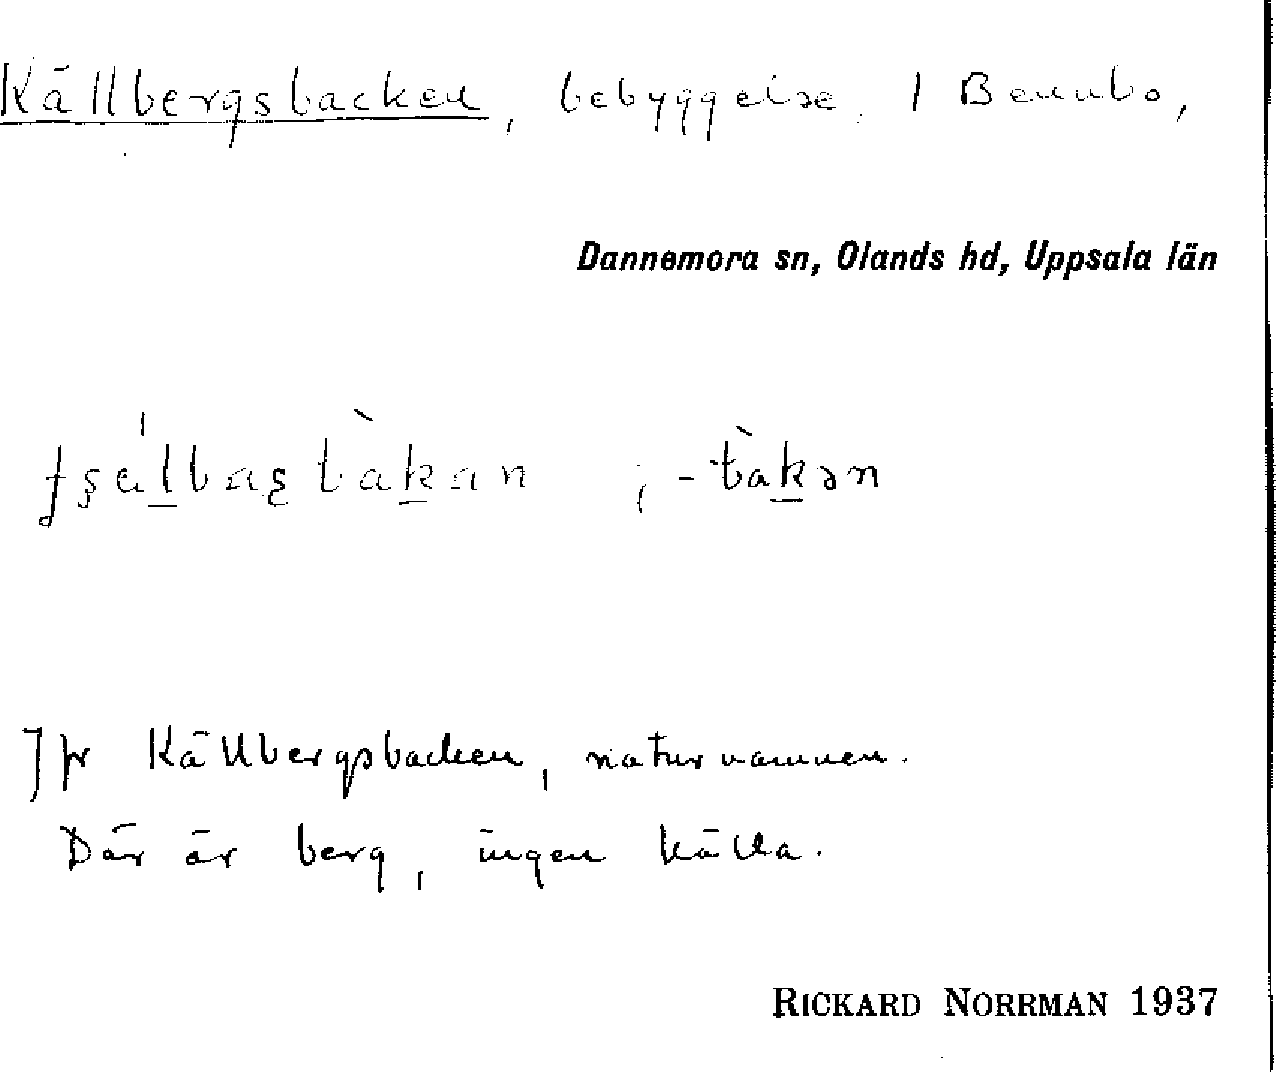 Källbergsbacken, bebyggelse i Bennbo,
Dannemora sn, Olands hd, Uppsala län
; -bàkən
Jfr Källbergsbacken, naturnamnen.
Där är berg, ingen källa.
RICKARD NORRMAN 1937